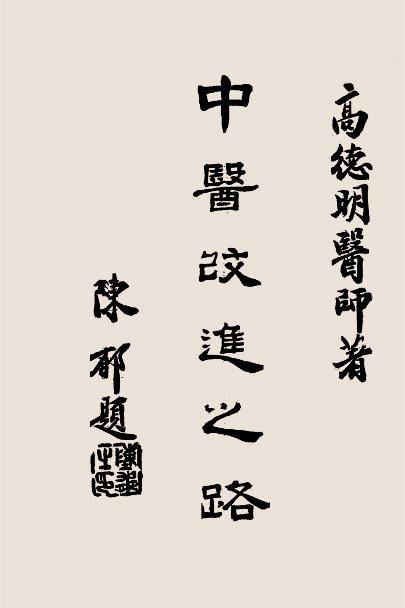 高德明醫師著
中醫改進之路
陳郁題